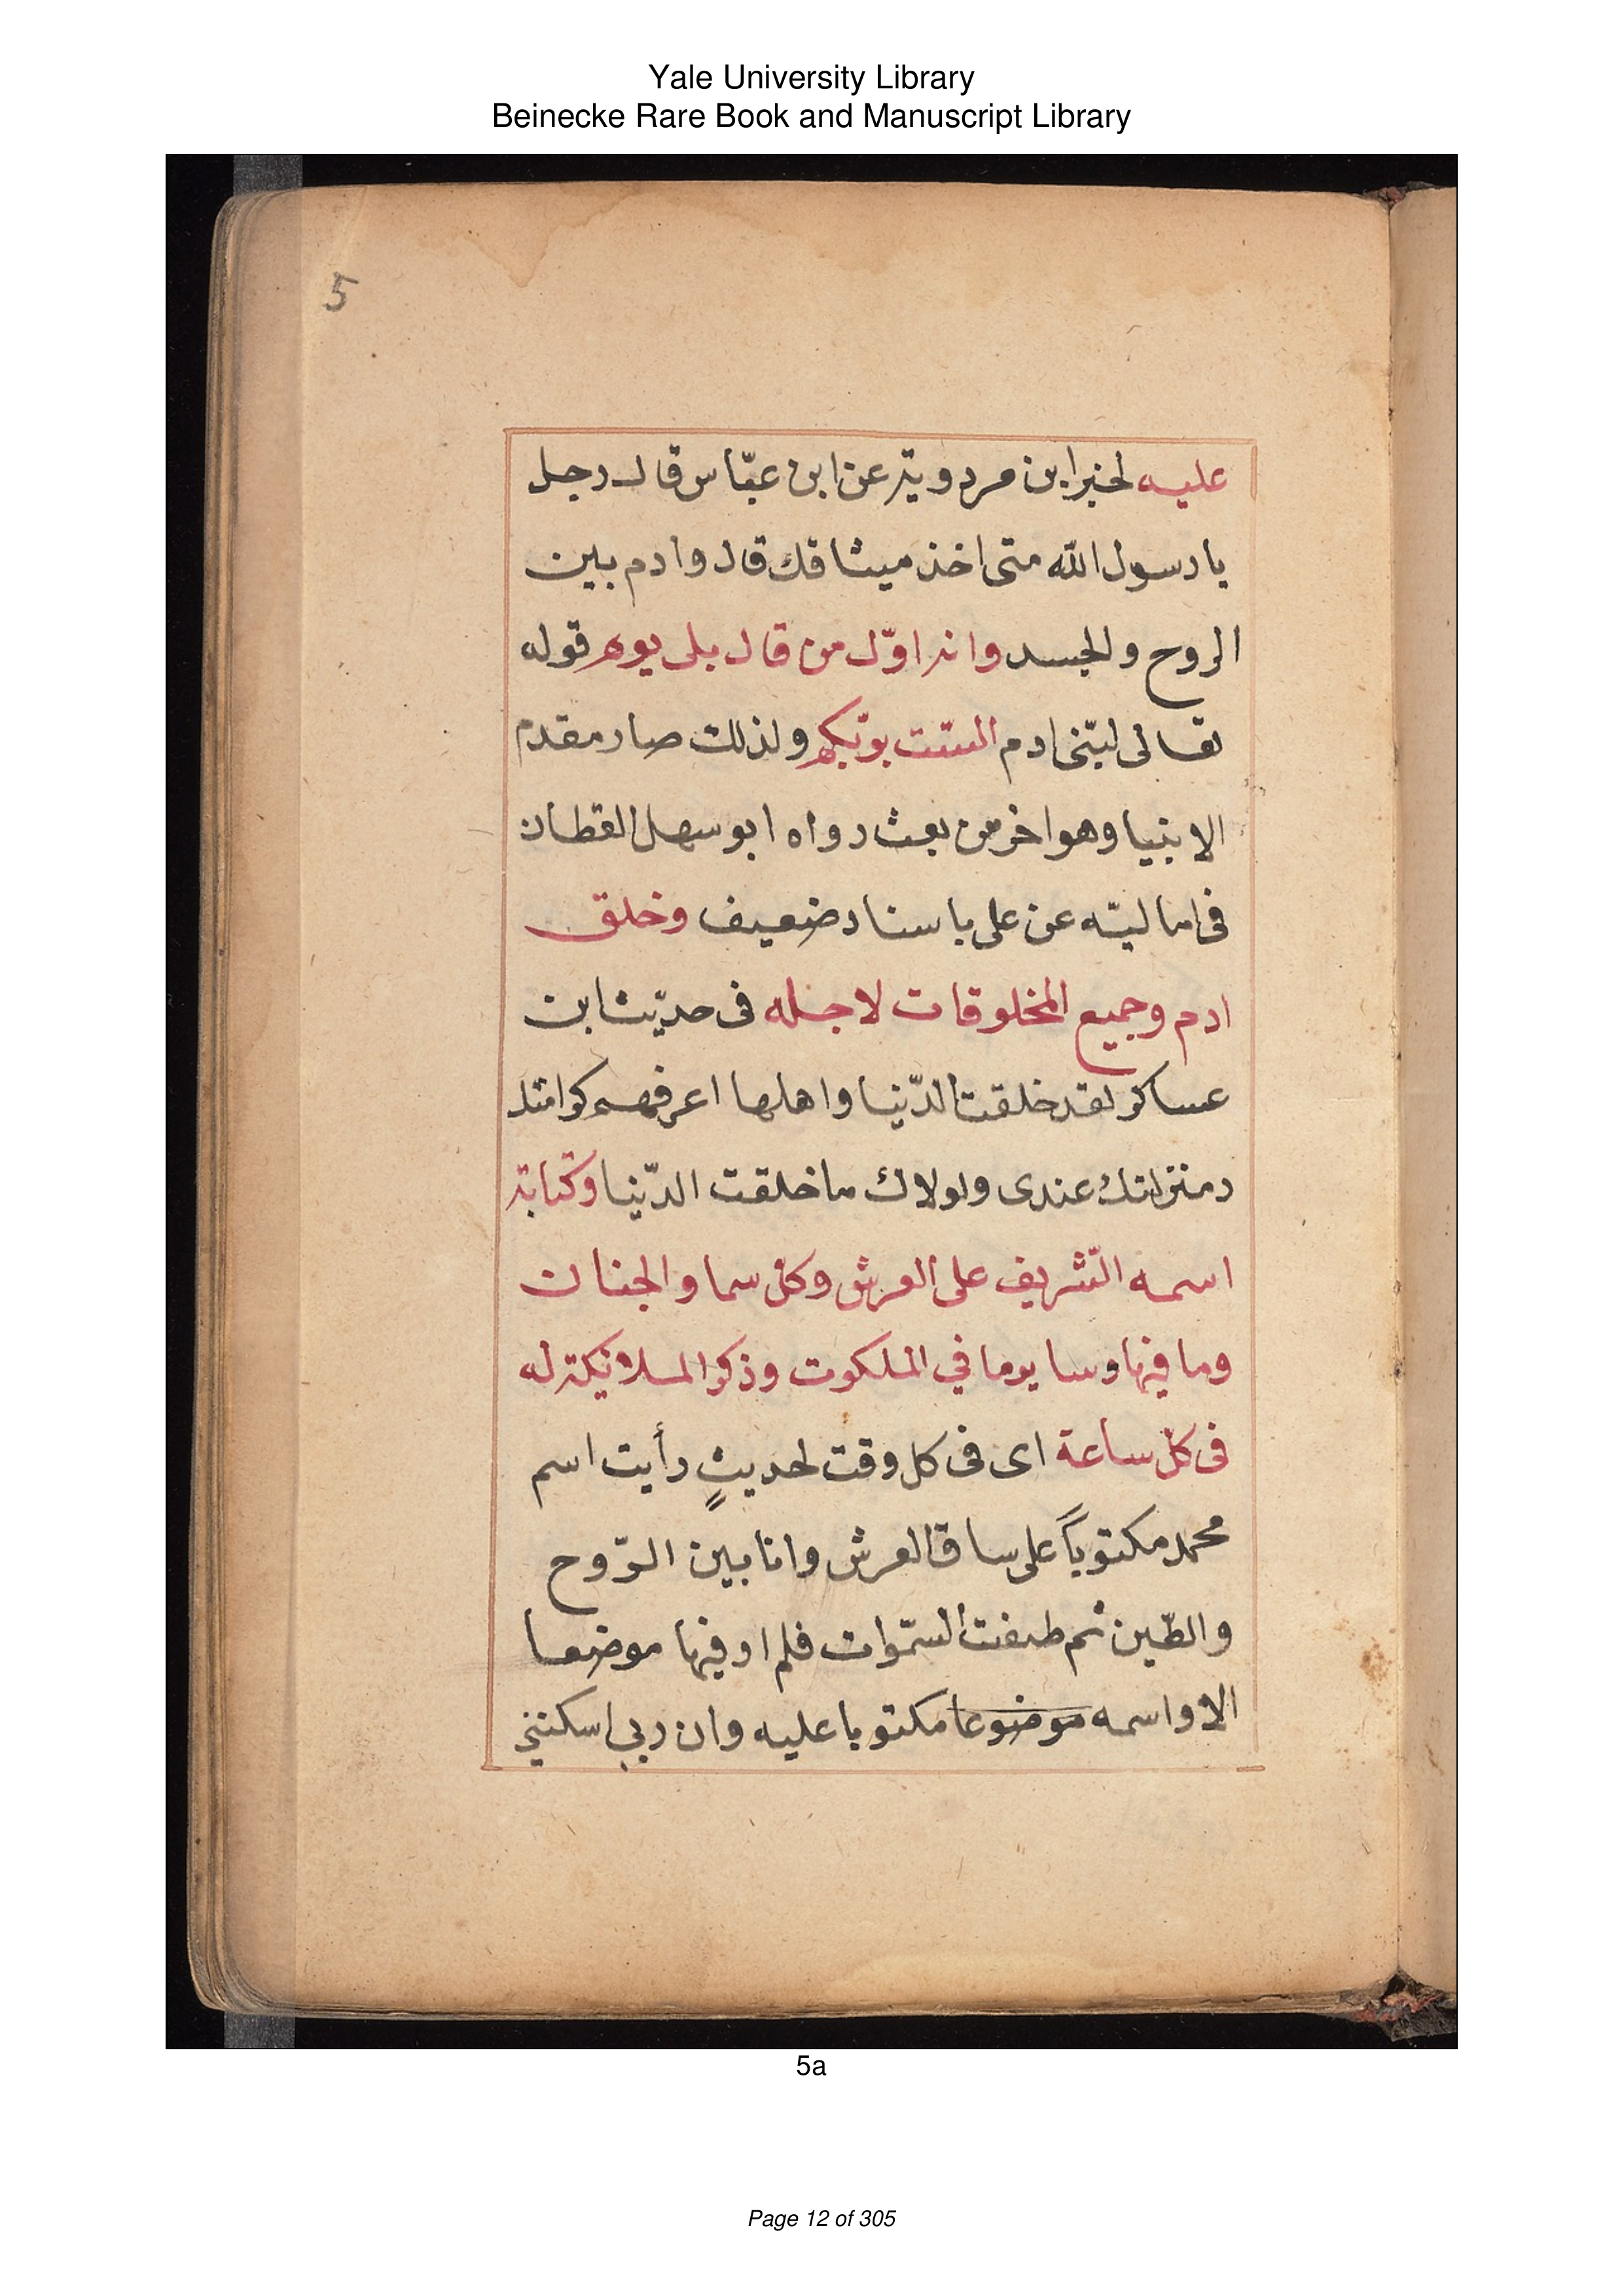 Yale University Library
Beinecke Rare Book and Manuscript Library
5
عليه لخبر ابن مردويته عن ابن عبّاس قال رجل
يا رسول الله متى اخذ ميثاقك قال وادم بين
الروح والجسد وانه اوّل من قال بلى يوم قوله
تعالى لبنى ادم الست بربّكم ولذلك صار مقدم
الانبيا وهو اخر من بعث رواه ابو سهل القطان
فى اماليّه عن على باسناد ضعيف وخلق
ادم وجميع المخلوقات لاجله فى حديث ابن
عساكر لقد خلقت الدّنيا واهلها اعرفهم كرامتك
ومنزلتك عندى ولولاك ما خلقت الدّنيا وكتابة
اسمه الشريف على العرش وكل سما والجنان
وما فيها وسا يوما في الملكوت وذكر الملائكة له
فى كل ساعة اى فى كل وقت لحديثٍ رأيت اسم
محمد مكتوباً على ساق العرش وانا بين الرّوح
والطّين ثم طفت السّموات فلم ار فيها موضعا
الا واسمه موضوعا مكتوبا عليه وان ربي اسكنني
5a
Page 12 of 305